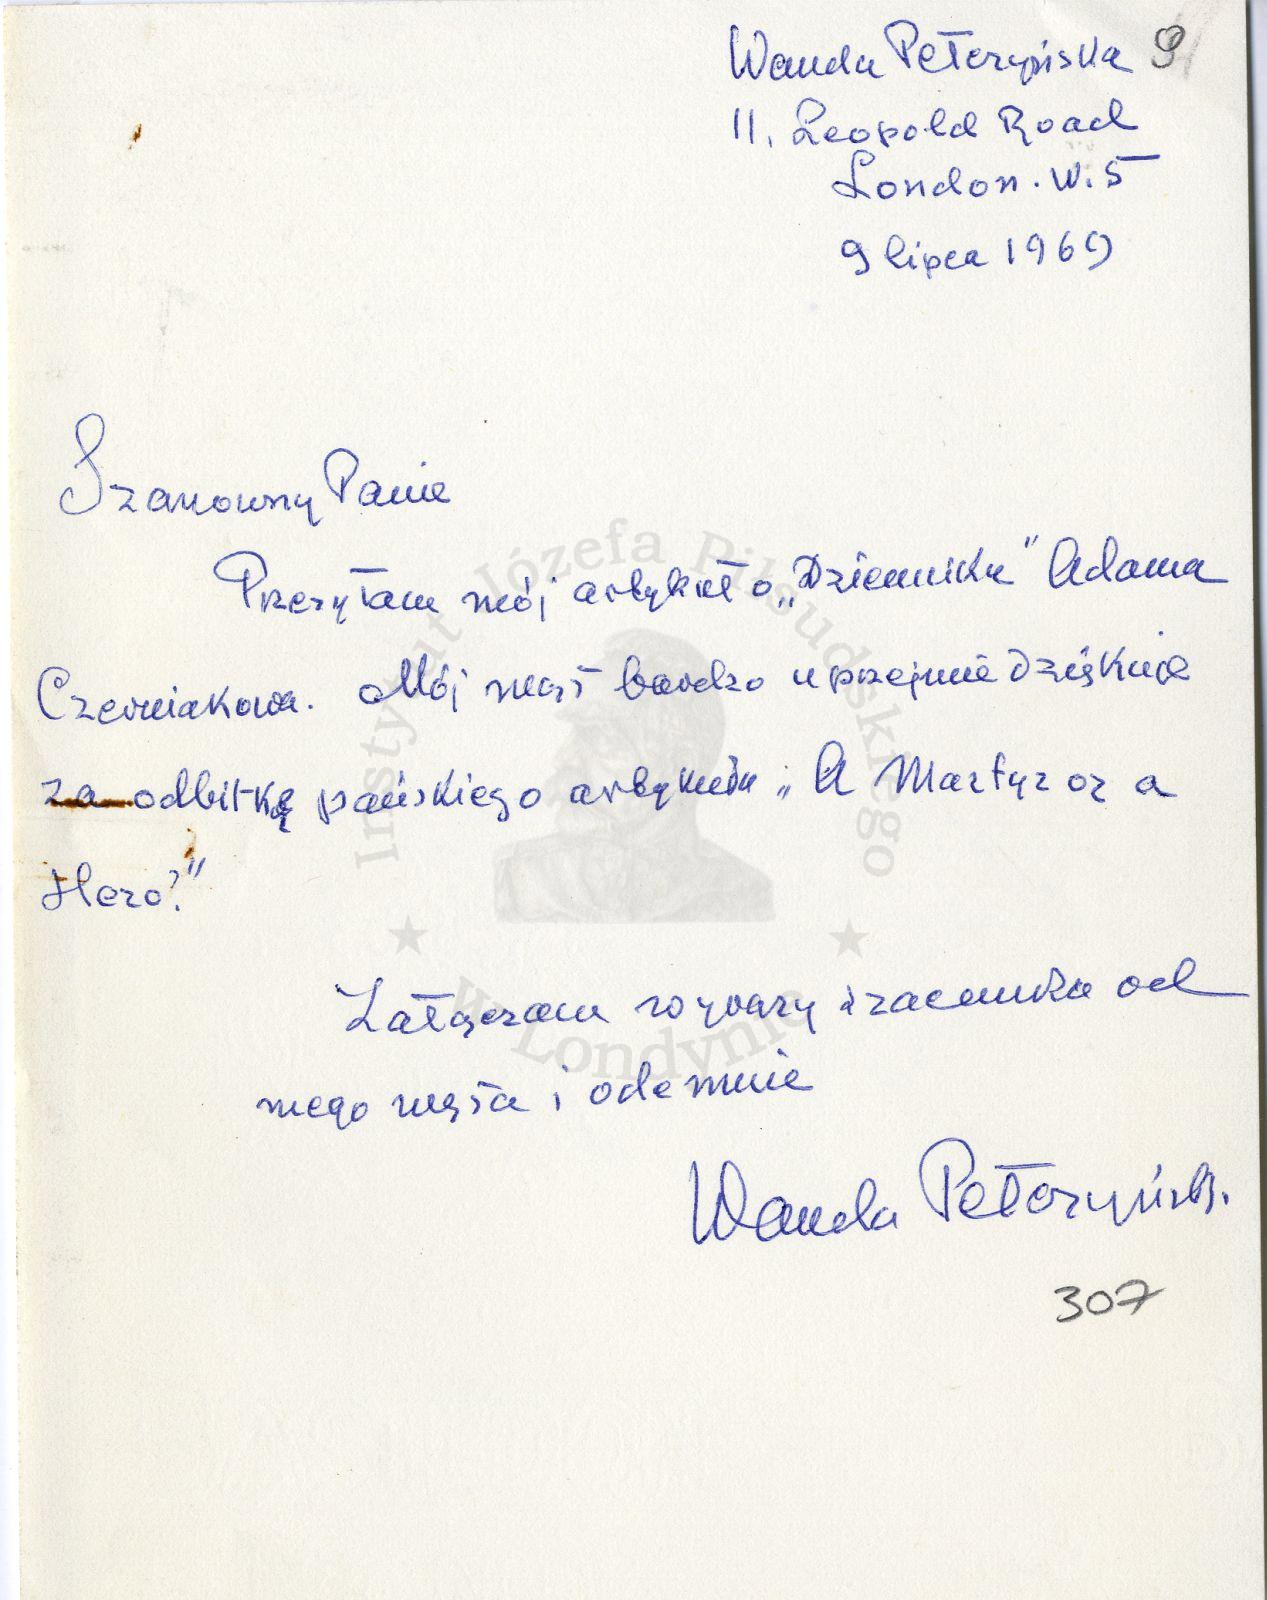 Wanda Pełczyńska 9
11. Leopold Road
London. W. 5
9 lipca 1969
Szanowny Panie
Przesyłam mój artykuł o „Dzienniku" Adama
Czerniakowa. Mój mąż bardzo uprzejmie dziękuje
za odbitkę pańskiego artykułu „A Martyr or a
Hero?"
Załączam wyrazy szacunku od
mego męża i odemnie
Wanda Pełczyńska
307
Instytut Józefa Piłsudskiego
w Londynie